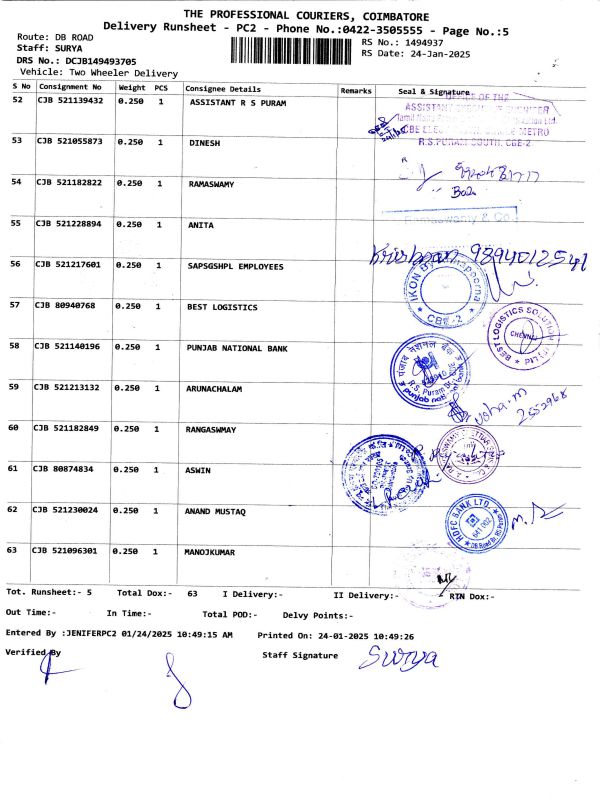 THE PROFESSIONAL COURIERS, COIMBATORE
Delivery Runsheet - PC2 - Phone No.:0422-3505555 - Page No.:5
Route: DB ROAD
RS No.: 1494937
Staff: SURYA
RS Date: 24-Jan-2025
DRS No.: DCJB149493705
Vehicle: Two Wheeler Delivery
S No Consignment No Weight PCS Consignee Details Remarks Seal & Signature
52 CJB 521139432 0.250 1 ASSISTANT R S PURAM
OFFICE OF THE
R.S.PURAM SOUTH, CBE-2
53 CJB 521055873 0.250 1 DINESH
54 CJB 521182822 0.250 1 RAMASWAMY
Ramaswamy & Co
55 CJB 521228894 0.250 1 ANITA
Krishnan 9894012541
56 CJB 521217601 0.250 1 SAPSGSHPL EMPLOYEES
CBE-2
57 CJB 80940768 0.250 1 BEST LOGISTICS
BEST LOGISTICS SOLUTION (P) LTD
CHENNAI
58 CJB 521140196 0.250 1 PUNJAB NATIONAL BANK
पंजाब नेशनल बैंक
R.S. Puram Br.
punjab national bank
59 CJB 521213132 0.250 1 ARUNACHALAM
Usha.m
2552968
60 CJB 521182849 0.250 1 RANGASWMAY
61 CJB 80874834 0.250 1 ASWIN
62 CJB 521230024 0.250 1 ANAND MUSTAQ
HDFC BANK LTD.
641 002
63 CJB 521096301 0.250 1 MANOJKUMAR
Tot. Runsheet:- 5 Total Dox:- 63 I Delivery:- II Delivery:- RTN Dox:-
Out Time:- In Time:- Total POD:- Delvy Points:-
Entered By :JENIFERPC2 01/24/2025 10:49:15 AM Printed On: 24-01-2025 10:49:26
Verified By Staff Signature Surya